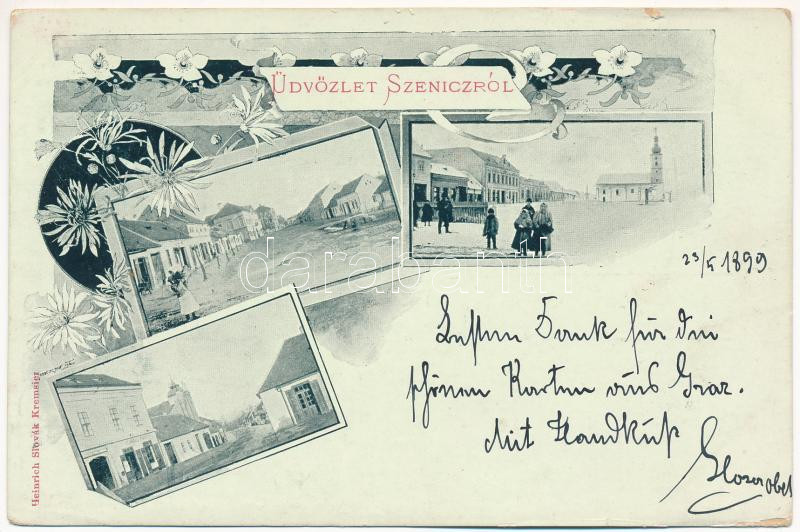 ÜDVÖZLET SZENICZRÓL
darabanth
23/5 1899
Besten Dank für die
schönen Karten aus Graz.
Mit Handkuß
Heinrich Slovák Kremsier